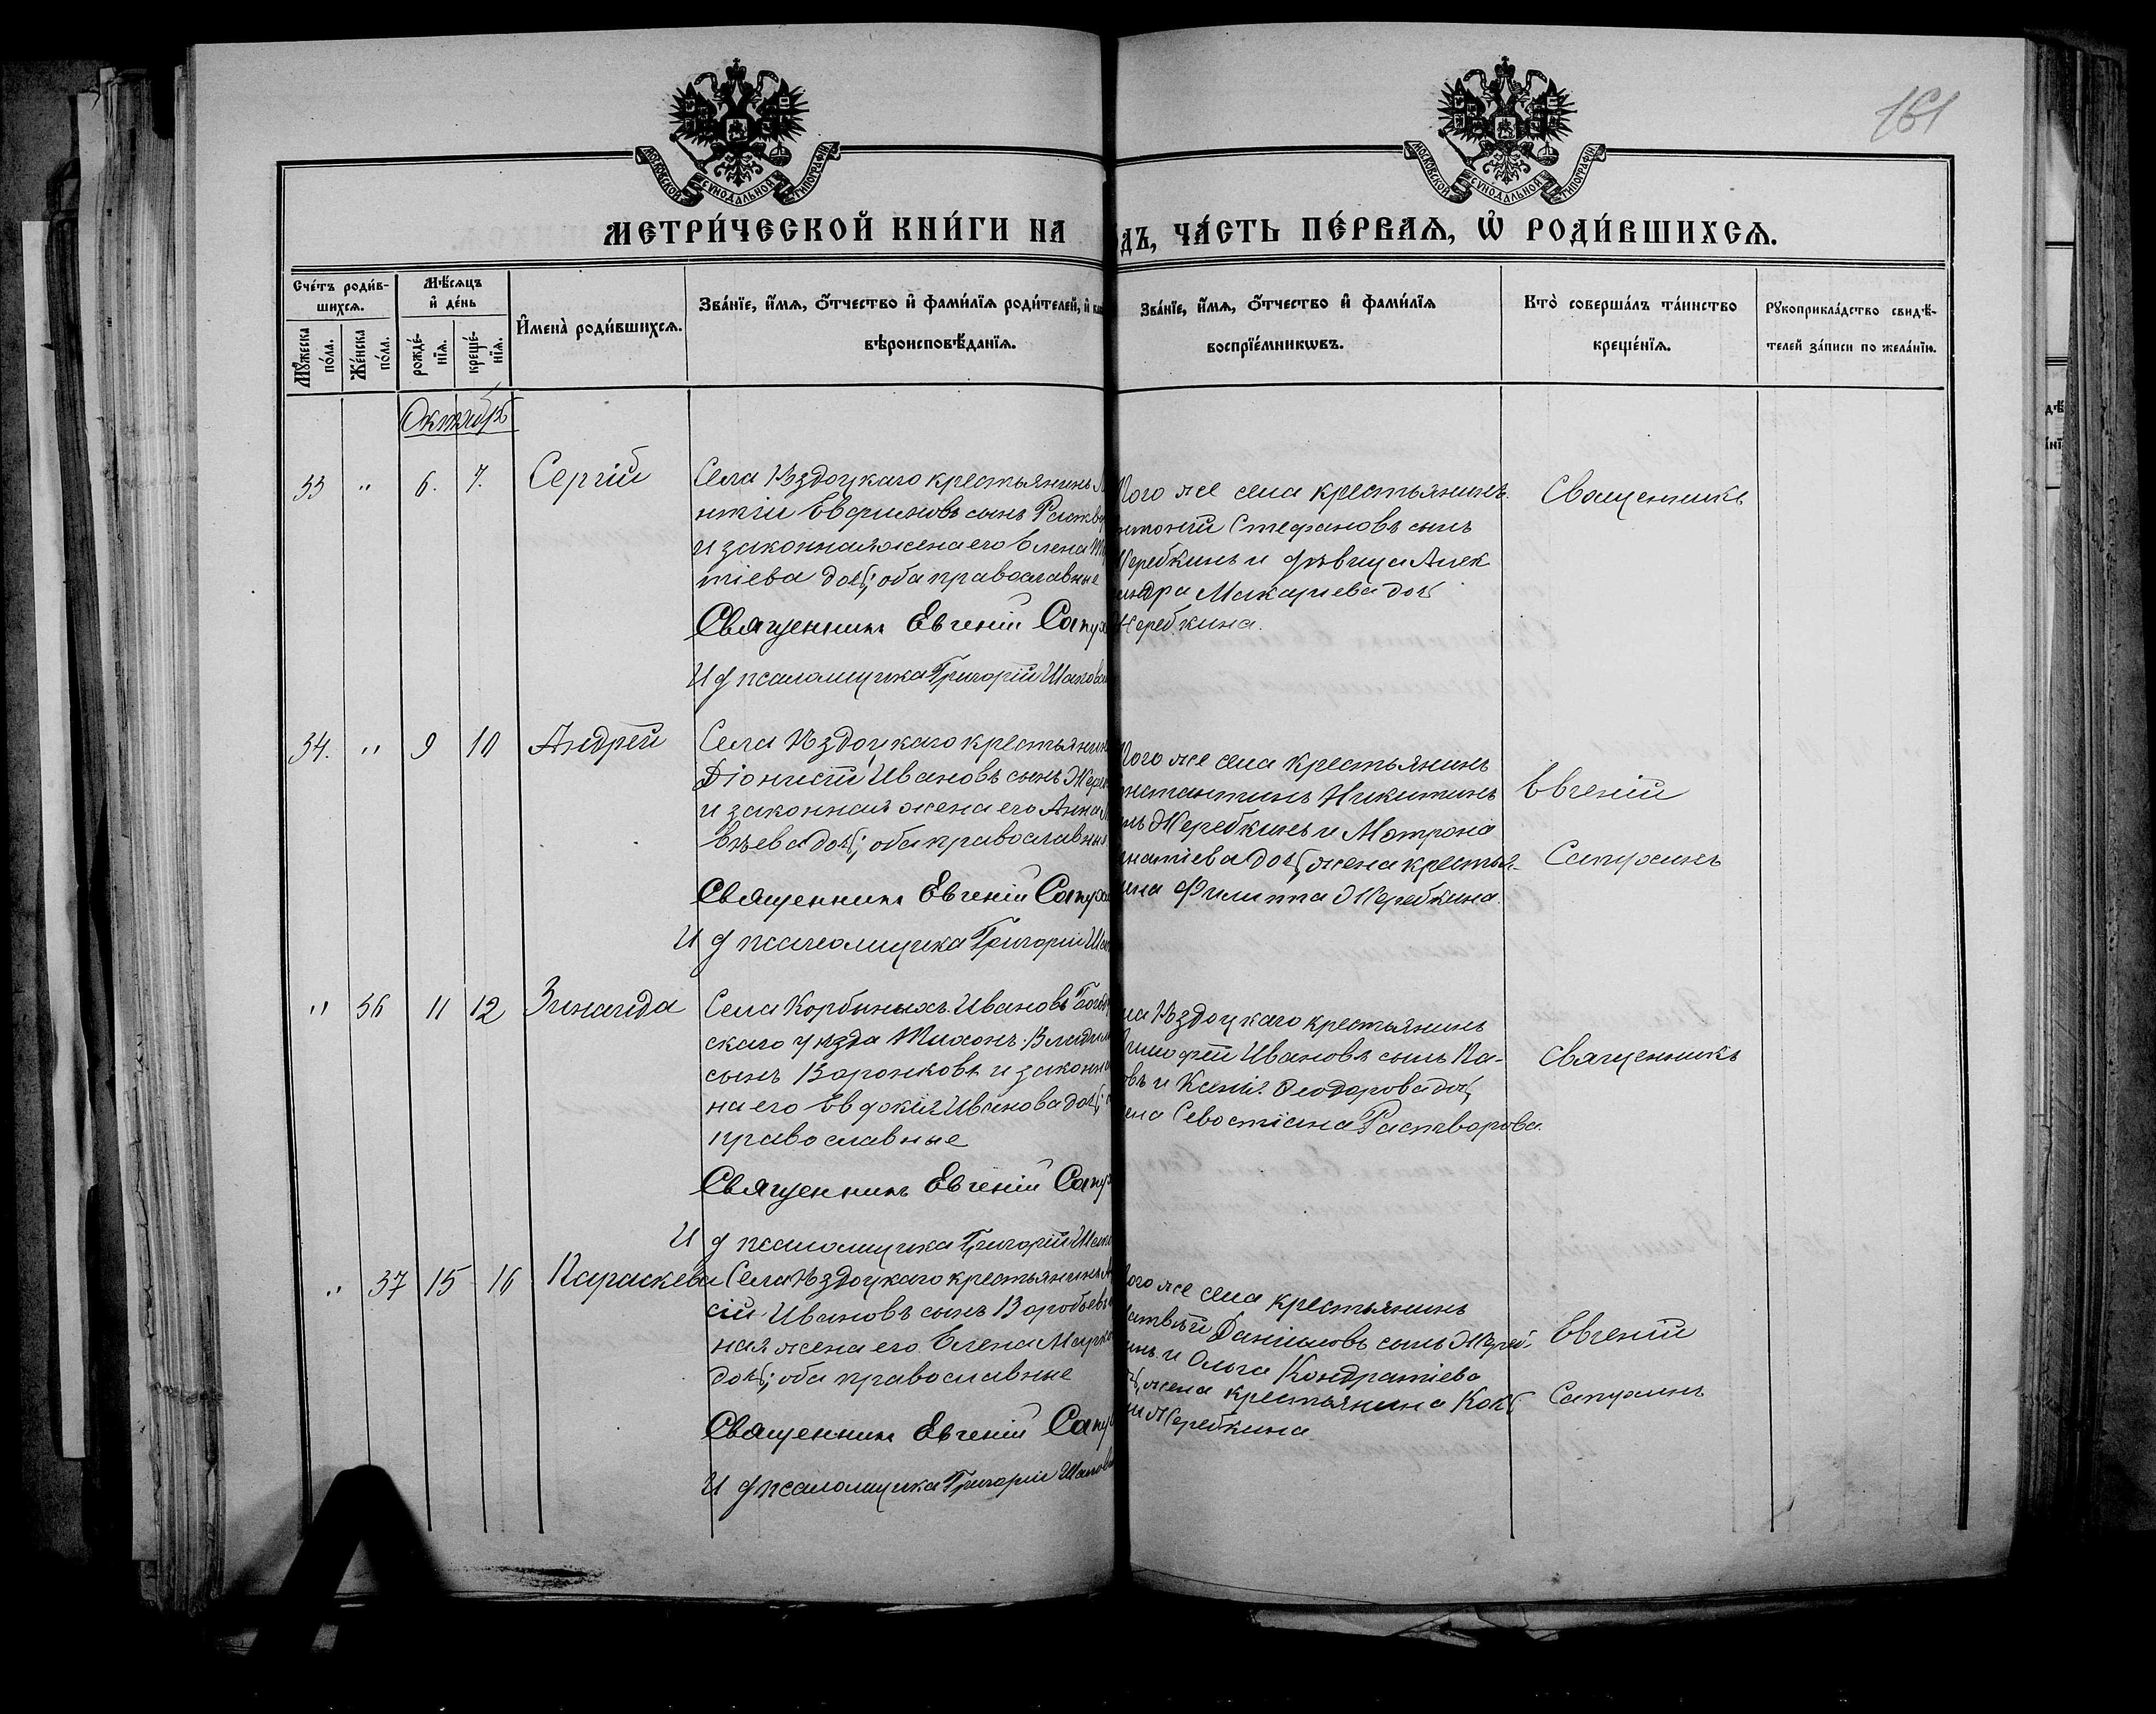 161
МОСКОВСКОЙ СѴНОДАЛЬНОЙ ТИПОГРАФІИ
МОСКОВСКОЙ СѴНОДАЛЬНОЙ ТИПОГРАФІИ
МЕТРИ́ЧЕСКОЙ КНИ́ГИ НА
ДЪ, ЧА́СТЬ ПЕ́РВАѦ, Ѡ҆ РОДИ́ВШИХСѦ.
Сче́тъ роди́в-
шихсѧ.
Мѣ́сѧцъ
и҆ де́нь
Мꙋ́жеска
по́ла.
Же́нска
по́ла.
рожде́-
нїѧ.
креще́-
нїѧ.
И҆мена̀ роди́вшихсѧ.
Зва́нїе, и҆́мѧ, ѻ҆́тчество и҆ фами́лїѧ роди́телей, и҆
вѣроисповѣ́данїѧ.
Зва́нїе, и҆́мѧ, ѻ҆́тчество и҆ фами́лїѧ
воспрїе́мникѡвъ.
Кто̀ соверша́лъ та́инство
креще́нїѧ.
Рꙋкоприкла́дство свидѣ́-
телей за́писи по жела́нїю.
Октябрь
33 " 6. 7. Сергій
Села Ѣздоцкаго крестьянинъ
нтій сынъ
и законная жена его Елена
тіева дочь; оба православные
Священникъ Евгеній Сапух
И д псаломщика Григорій Шапов
Того же села крестьянинъ
нтоній Стефановъ сынъ
Жеребкинъ и дѣвица Алек
ндра Макаріева дочь
Жеребкина.
Священникъ
34. " 9 10 Андрей
Села Ѣздоцкаго крестьянин
Діонисій Ивановъ сынъ Жере
и законная жена его Анна
вѣева дочь; оба православны
Священникъ Евгеній Сапух
И д псаломщика Григорій Ша
Того же села крестьянинъ
нстантинъ Никитинъ
нъ Жеребкинъ и Матрона
гнатіева дочь, жена крестья-
нина Филиппа Жеребкина.
Евгеній
Сапухинъ
" 36 11 12 Зинаида
Села Корбиныхъ Ивановъ
скаго уѣзда Тихонъ Владим
сынъ Воронковъ и законн
на его Евдокія Иванова дочь;
православные
Священникъ Евгеній Сапу
И д псаломщика Григорій Шап
ла Ѣздоцкаго крестьянинъ
Тимофей Ивановъ сынъ По-
овъ и Ксенія Ѳеодорова дочь,
ена Севостіана Растворова.
Священникъ
" 37 15 16 Параскева
Села Ѣздоцкаго крестьянинъ
сій Ивановъ сынъ Воробьевъ
ная жена его Елена Марко
дочь; оба православные
Священникъ Евгеній Сапу
И д псаломщика Григорій Шапов
Того же села крестьянинъ
Матвѣй Даніиловъ сынъ Жереб-
инъ и Ольга Кондратіева
чь, жена крестьянина
Жеребкина
Евгеній
Сапухинъ